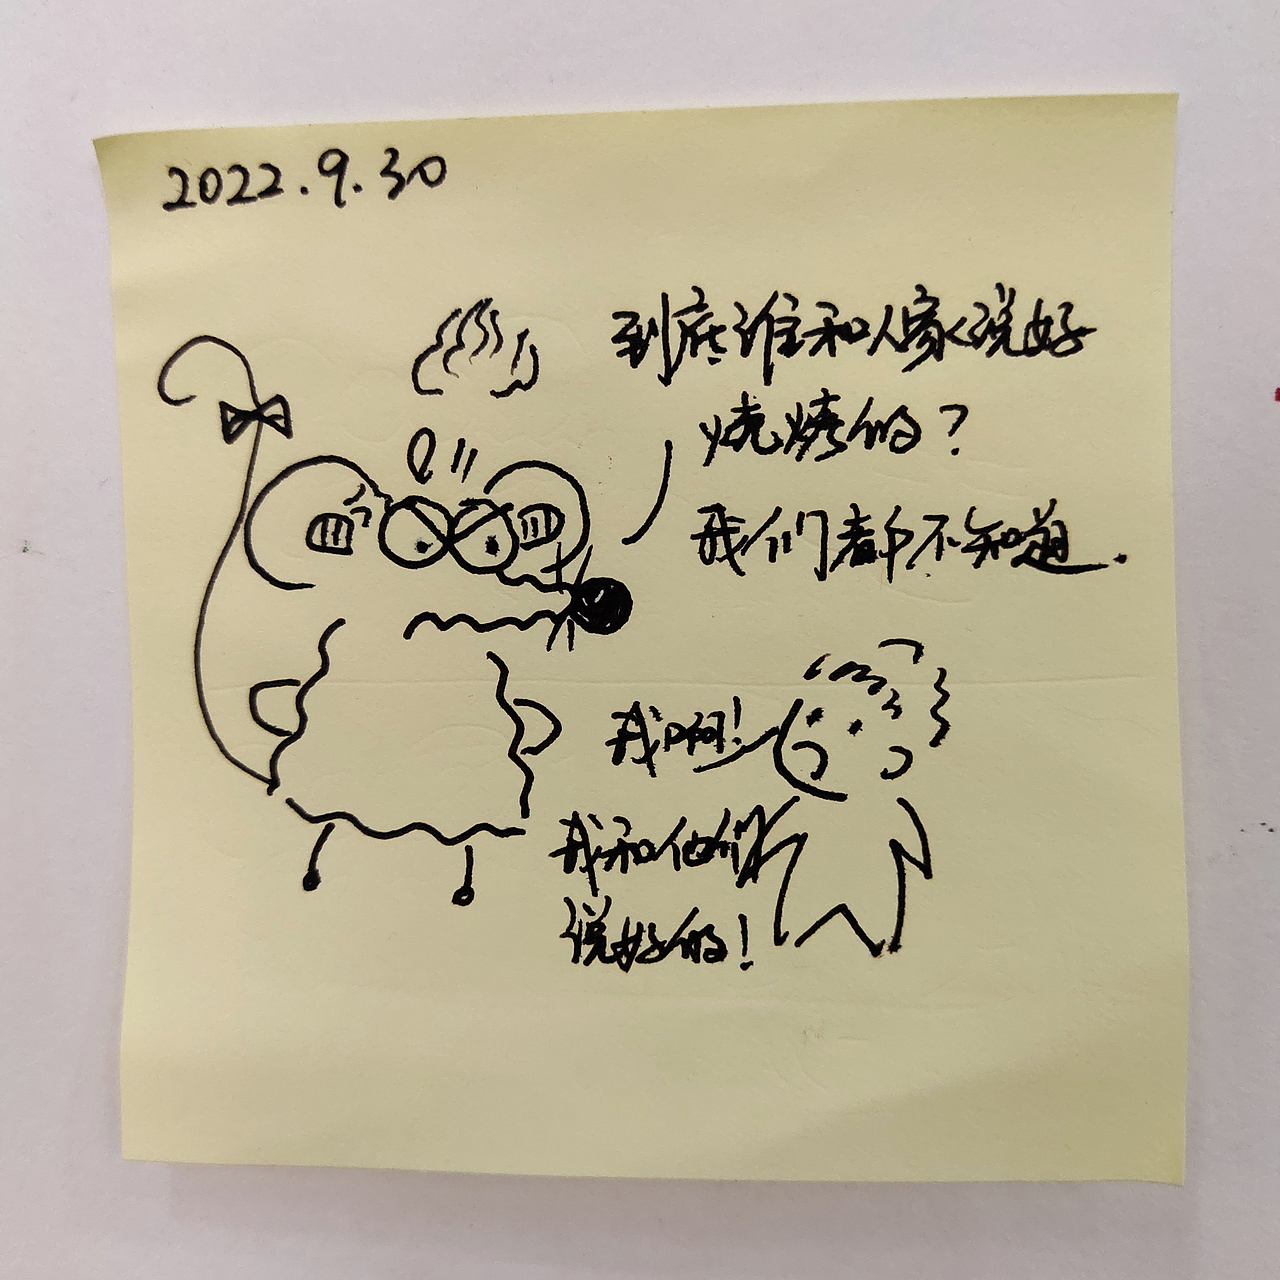 2022.9.30
到底谁和人家说好
烧烤的？
我们都不知道.
我啊！
我和他们
说好的！